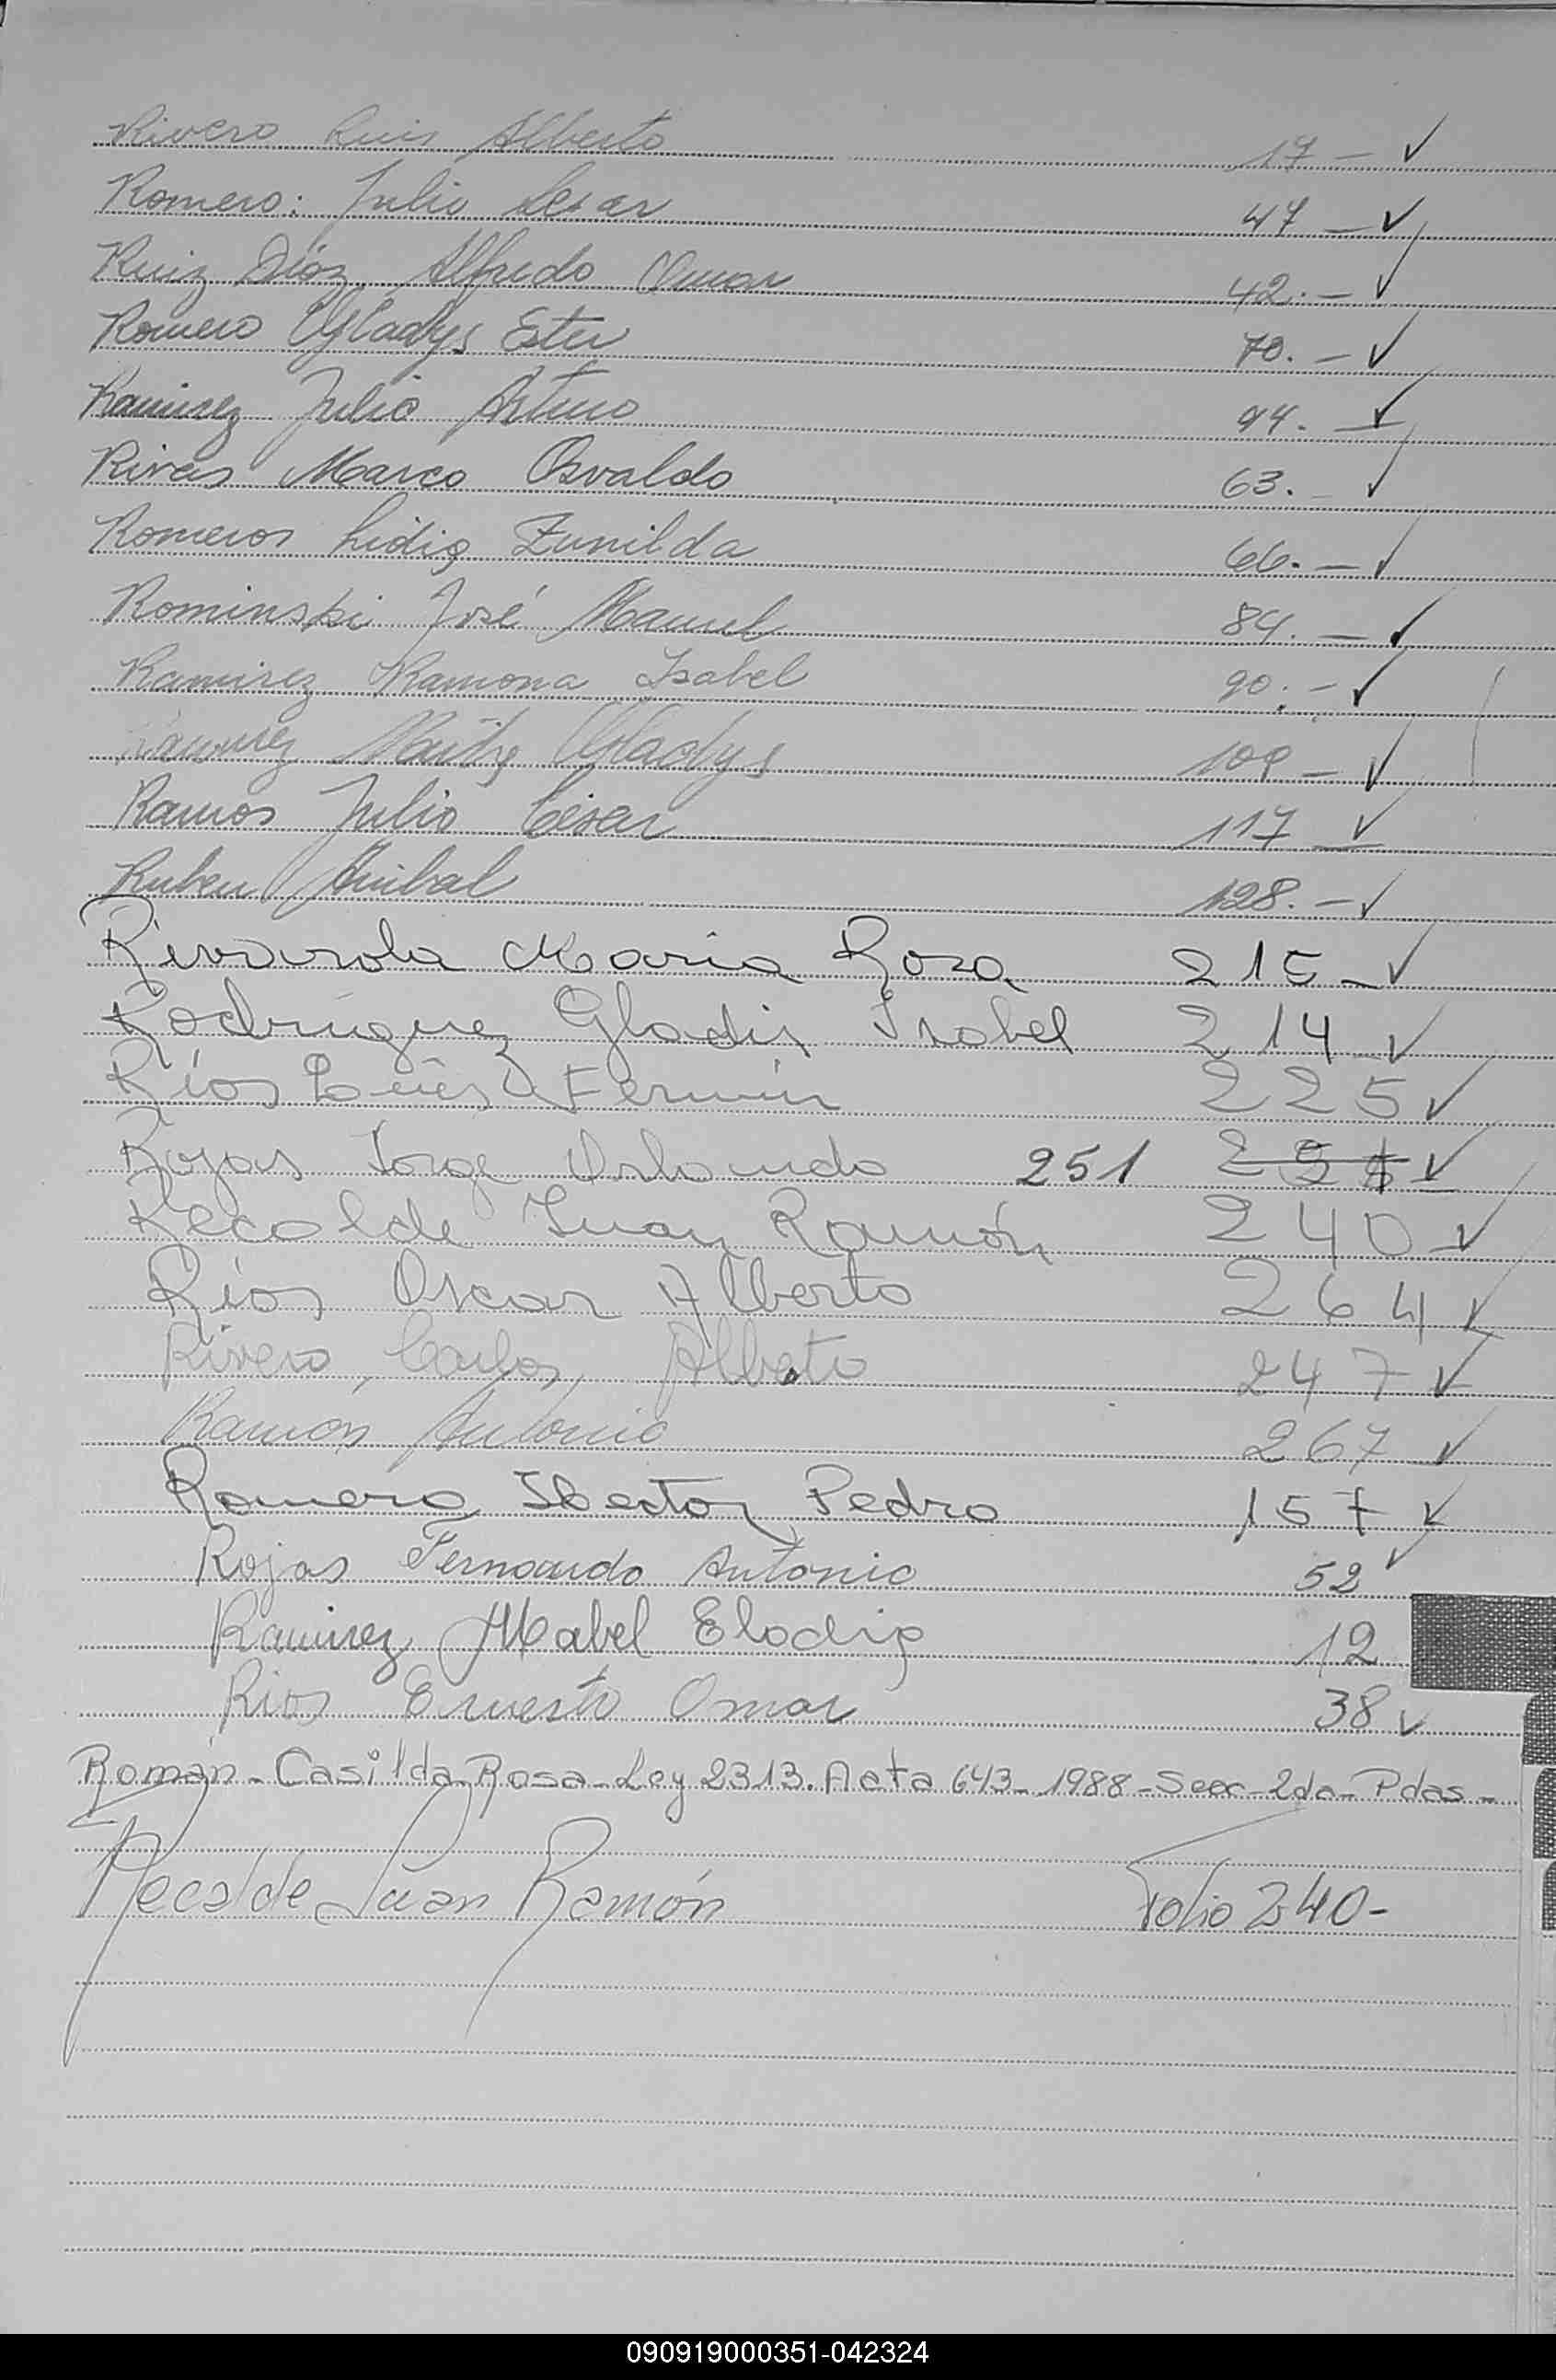 Rivero Luis Alberto 17 - ✓
Romero: Julio Cesar 47 - ✓
Ruiz Díaz Alfredo Omar 42. - ✓
Romero Gladys Ester 70. - ✓
Ramirez Julio Arturo 94. - ✓
Rivas Marco Osvaldo 63. - ✓
Romeros Lidia Zunilda 66. - ✓
Rominski José Manuel 84. - ✓
Ramirez Ramona Isabel 90. - ✓
Ramirez Gladys 109 - ✓
Ramos Julio César 117 - ✓
Ruben Anibal 128. - ✓
Rivarola Maria Rosa 215 - ✓
Rodriguez Gladis Isabel 214 - ✓
Ríos Luis Fermín 225 ✓
Rojas Jorge Orlando 251 ✓
Recalde Juan Ramón 240 ✓
Ríos Oscar Alberto 264 ✓
Rivero, Carlos, Alberto 247 ✓
Ramón Antonio 267 ✓
Romero Hector Pedro 157 ✓
Rojas Fernando Antonio 52 ✓
Ramirez Mabel Elodia 12
Rios Ernesto Omar 38 ✓
Román - Casilda Rosa - Ley 2313. Acta 643 - 1988 - Secc - 2da - Pdas -
Recalde Juan Ramón Folio 240 -
090919000351-042324